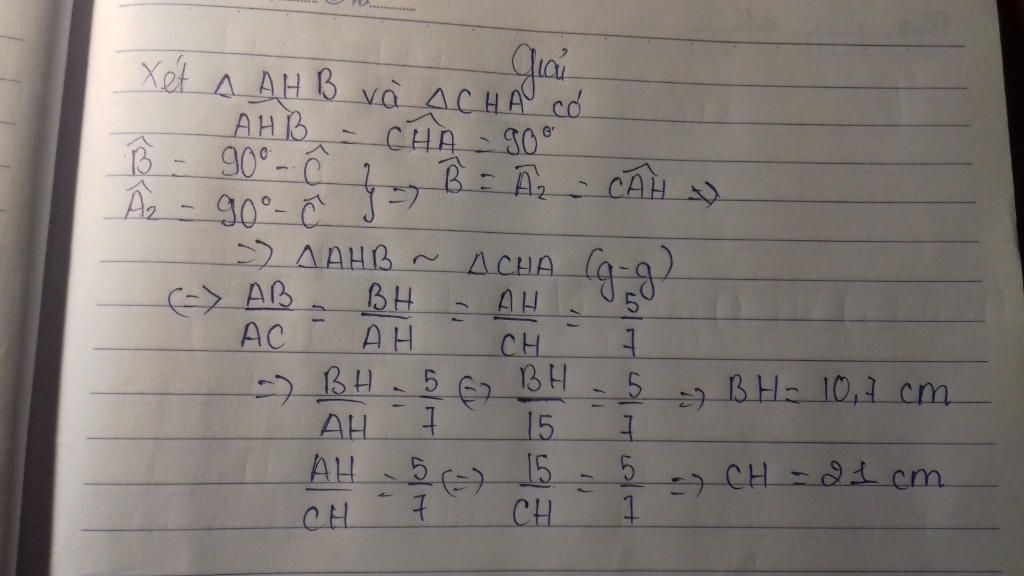 Giải
Xét △ AHB và △CHA có
AHB^ = CHA^ = 90°
B̂ = 90° - Ĉ } => B̂ = Â2 = CAH^ =>
Â2 = 90° - Ĉ
=> △AHB ~ △CHA (g-g)
(=> AB/AC = BH/AH = AH/CH = 5/7
=> BH/AH = 5/7 (=> BH/15 = 5/7 => BH = 10,7 cm
AH/CH = 5/7 (=> 15/CH = 5/7 => CH = 21 cm